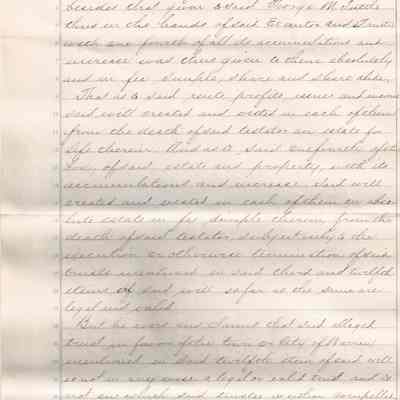 besides that given to said George M. Tuttle
then in the hands of said Executor and Trustee
with one fourth of all its accumulations and
increase was thus given to them absolutely
and in fee simple, share and share alike.
That as to said rents profits, issues and income
said will created and vested in each of them
from the death of said testator an estate for
life therein. And as to said one fourth of the
body of said estate and property, with its
accumulations and increase said will
created and vested in each of them an abso-
lute estate in fee simple therein, from the
death of said testator, subject only to the
execution or otherwise termination of said
trusts mentioned in said third and twelfth
items of said will so far as the same are
legal and valid.
But he avers and claims that said alleged
trust in favor of the town or City of Warren
mentioned in said twelfth item of said will
is not in any sense a legal or valid trust and is
not one which said trustee is either compelled